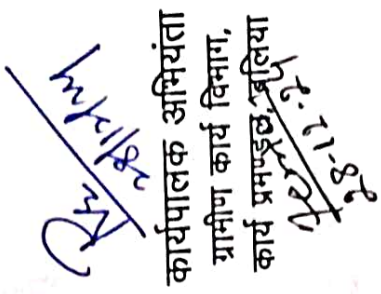 28/12/24
कार्यपालक अभियंता
ग्रामीण कार्य विभाग,
कार्य प्रमण्डल, बलिया
28-12-24